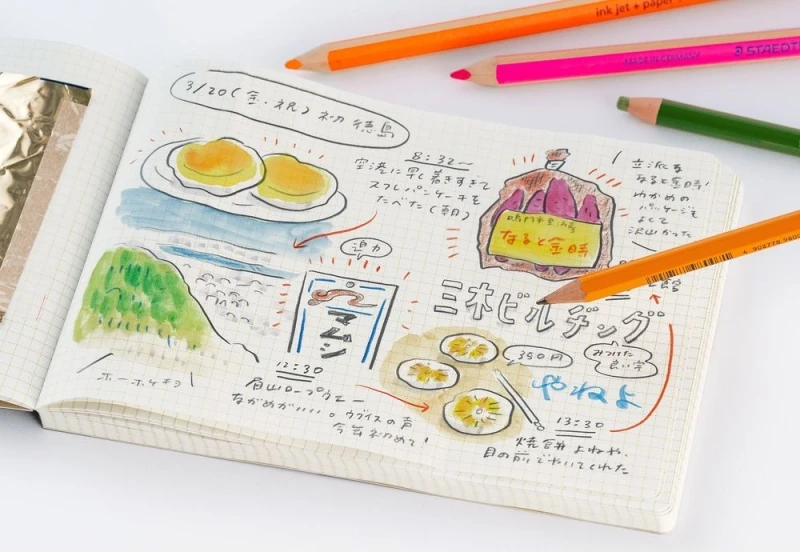 ink jet + paper
MADE IN GERMANY
STAEDT
3/20(金・祝)初 徳島
8:32〜
空港に早く着きすぎて
スフレパンケーキを
たべた(朝)
立派な
なると金時!
わかめの
パッケージも
よくて
沢山かった
なると金時
迫力
マムシ
三木ビルヂング
みつけた
良い字
350円
やねよ
ホーホケキョ
12:30
眉山ロープウェー
ながめがいい。ウグイスの声
今年初めて!
13:30
焼餅 よねや、
目の前でやいてくれた